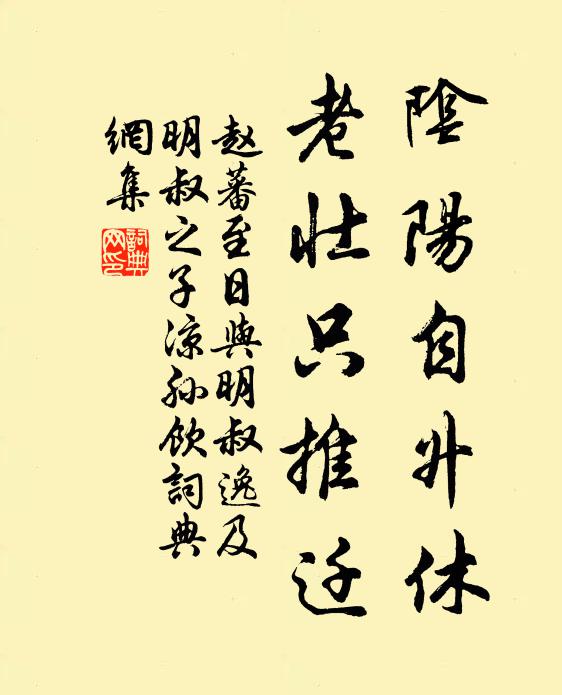 陰陽自升休
老壯只推迁
赵蕃至日與明叔逸及
明叔之子凉孙飲詞典
網集
詞典網印